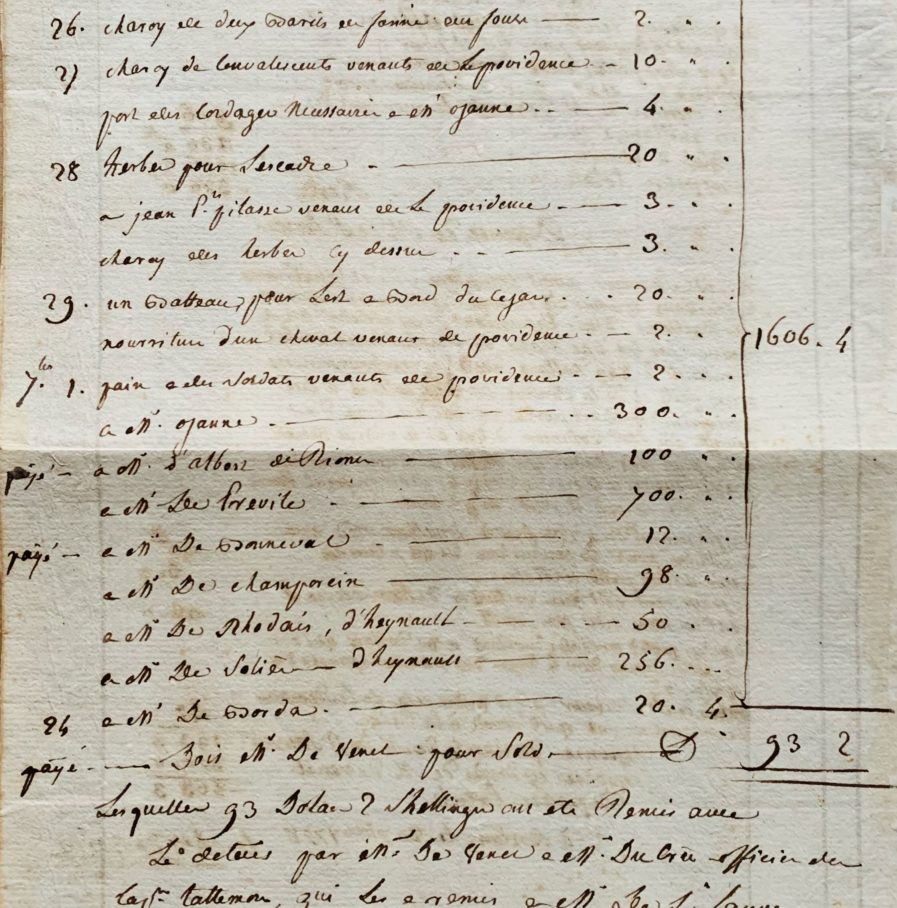 26. charoy de deux Barils de farine au four — 2. " .
27 charoy de Convalescents venants de Le providence — 10. " .
port des Cordages Necessaires a Mr ojanne . . — 4. " .
28 herbes pour Lescadre — 20 " .
a jean P.re pilasse venant de Le providence — 3. " .
charoy des herbes cy dessus . . — 3. " .
29. un Batteau pour Lest a Bord du Cezar . . . 20. " .
nourriture d'un cheval venant de providence — 2. " .
7.bre 1. pain a des Soldats venants de providence — 2. " .
a Mr. ojanne — 300. " .
payé — a Mr. d'albert de Rioms — 100 " .
a Mr De Preville — 700. " .
payé — a Mr De Bonneval — 12. " .
a Mr De champorcin — 98. " .
a Mr De Rhodais, d'heynault — 50 " .
a Mr De Soliers — d'heynault — 256. . .
1606. 4
24 a Mr De Borda — 20. 4.
payé — Dois Mr De Venel pour Solde — D 93 2
Lesquelles 93 Dolar 2 Shellings ont eté Remis avec
Le detail par Mr De Venel a Mr. Du Cros officier du
les a remis a Mr De St.